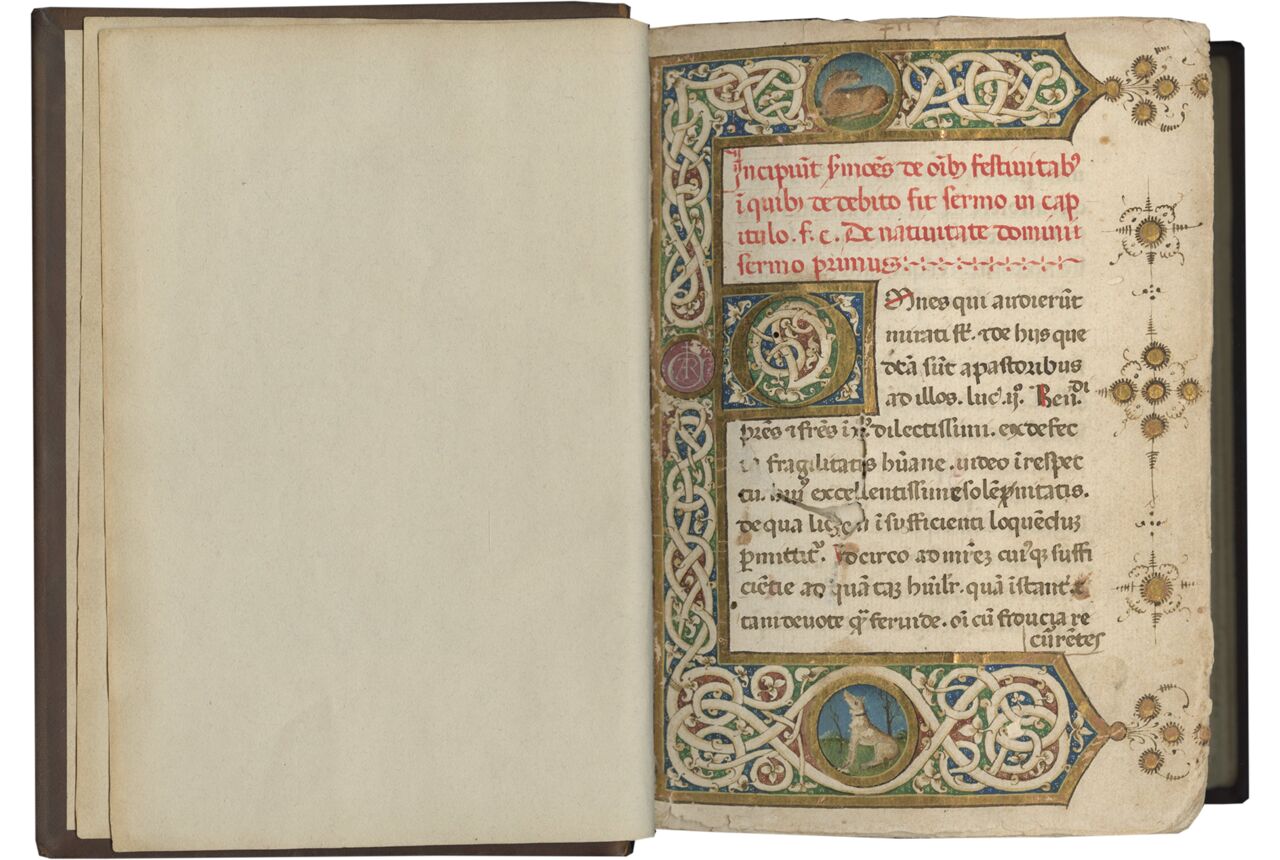 Incipiūt s̄moēs de oīb᷒ festiuitab᷒
ī quib᷒ de debito fit sermo in cap
itulo. f. c. De natiuitate domini
sermo primus
Omnes qui audierūt
mirati sūt. ⁊ de hijs que
dcā sūt a pastoribus
ad illos. luc̄. ij᷒. Reū.di
pr̄es ⁊ fr̄es ī dilectissimi. ex defec
fragilitatis hūane. uideo ī respec
tu. hui᷒ excellentissime solēpnitatis.
de qua ī sufficienti loquēdus
ꝑmittit᷒. Idcirco ad suffi
ciētie ad quā humil̄r. quā īstant
tam deuote feruide. cū fiducia re
cūrētes